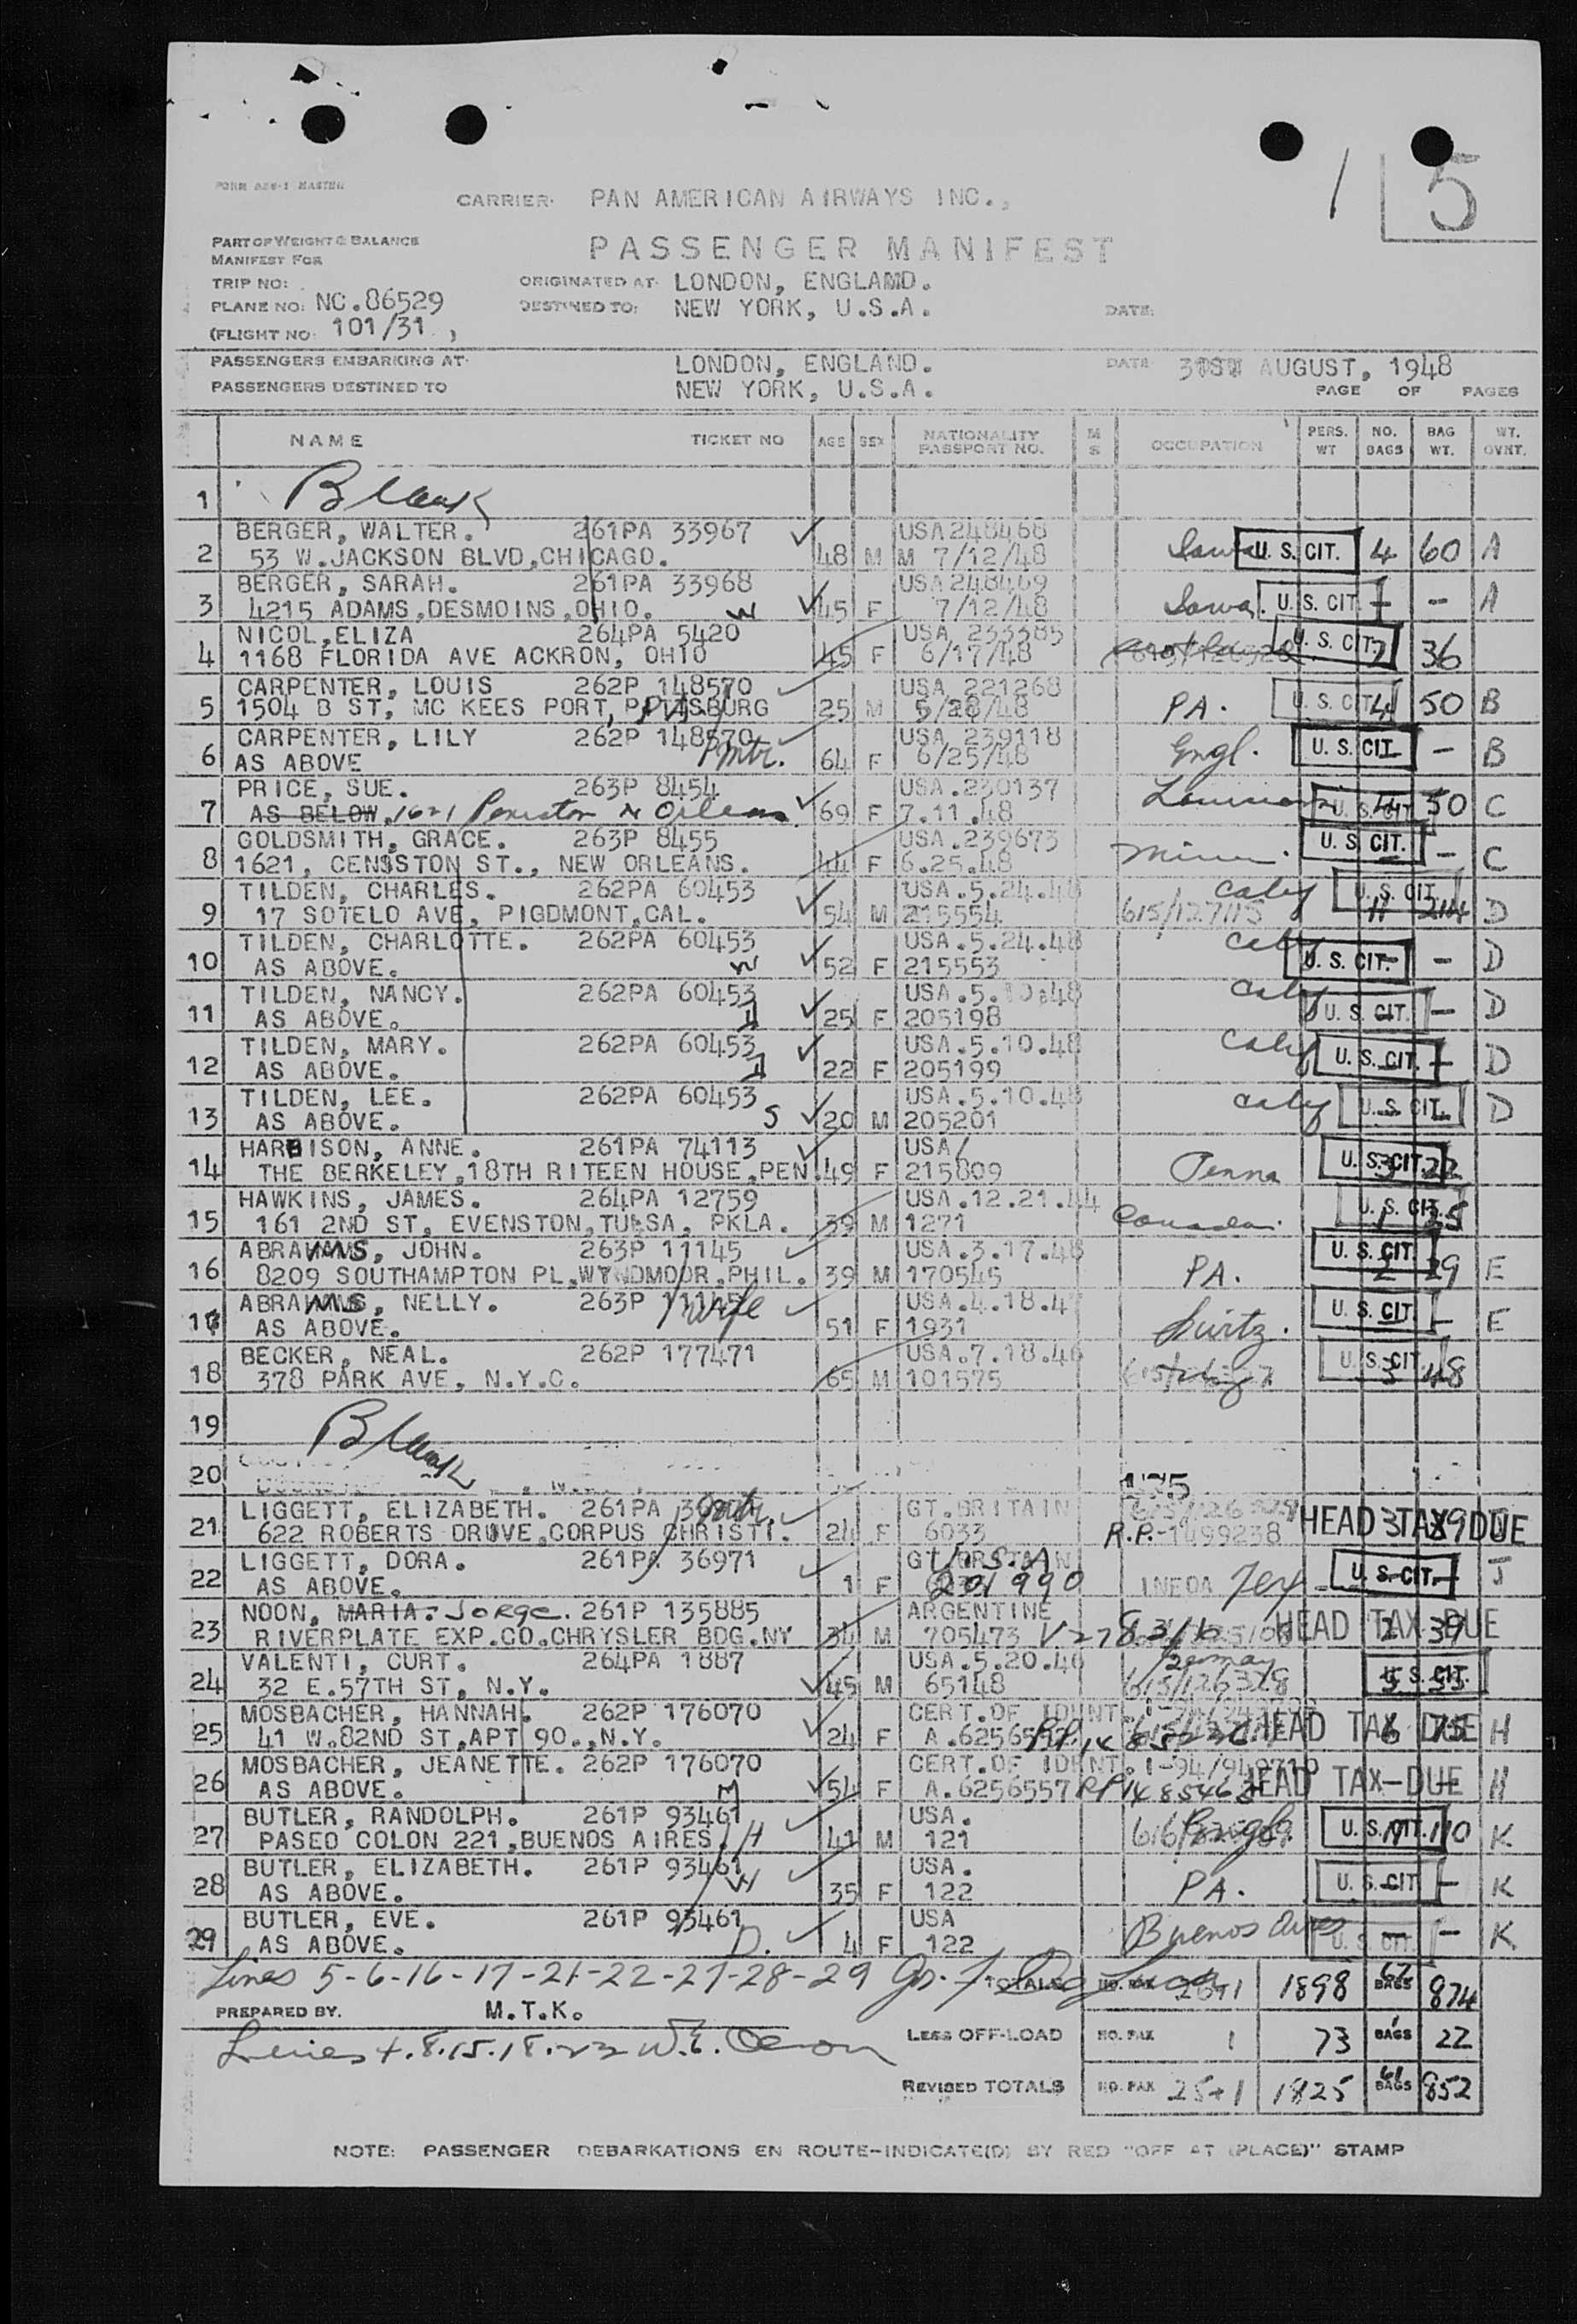 1 5
FORM
CARRIER: PAN AMERICAN AIRWAYS INC.,
PART OF WEIGHT & BALANCE
MANIFEST FOR
PASSENGER MANIFEST
TRIP NO:
ORIGINATED AT: LONDON, ENGLAND.
PLANE NO: NC.86529
DESTINED TO: NEW YORK, U.S.A.
DATE:
(FLIGHT NO: 101/31 )
PASSENGERS EMBARKING AT: LONDON, ENGLAND. DATE 31ST AUGUST, 1948
PASSENGERS DESTINED TO NEW YORK, U.S.A. PAGE OF PAGES
NAME TICKET NO AGE SEX NATIONALITY PASSPORT NO. M S OCCUPATION PERS. WT NO. BAGS BAG WT. WT. OVHT.
1 Blank
BERGER, WALTER. 261PA 33967 USA 248468
2 53 W.JACKSON BLVD,CHICAGO. 48 M M 7/12/48 Iowa U.S.CIT. 4 60 A
BERGER, SARAH. 261PA 33968 USA 248469
3 4215 ADAMS,DESMOINS,OHIO. W 45 F 7/12/48 Iowa. U.S.CIT. - - A
NICOL,ELIZA 264PA 5420 USA 233385
4 1168 FLORIDA AVE ACKRON, OHIO 45 F 6/17/48 U.S.CIT. 2 36
CARPENTER, LOUIS 262P 148570 USA 221268
5 1504 B ST, MC KEES PORT, PITTSBURG 25 M 5/28/48 PA. U.S.CIT. 4 50 B
CARPENTER, LILY 262P 148570 USA 239118
6 AS ABOVE Mtr. 64 F 6/25/48 Engl. U.S.CIT. - B
PRICE, SUE. 263P 8454 USA.230137
7 AS BELOW. 1621 Orleans 69 F 7.11.48 U.S.CIT. 4 50 C
GOLDSMITH, GRACE. 263P 8455 USA.239673
8 1621, CENSSTON ST., NEW ORLEANS. 44 F 6.25.48 Minn. U.S.CIT. - C
TILDEN, CHARLES. 262PA 60453 USA.5.24.48 Calif U.S.CIT.
9 17 SOTELO AVE, PIGDMONT,CAL. 54 M 215554 615/127115 11 214 D
TILDEN, CHARLOTTE. 262PA 60453 USA.5.24.48 Calif
10 AS ABOVE. W 52 F 215553 U.S.CIT. - D
TILDEN, NANCY. 262PA 60453 USA.5.10.48 Calif
11 AS ABOVE. 25 F 205198 U.S.CIT. - D
TILDEN, MARY. 262PA 60453 USA.5.10.48 Calif
12 AS ABOVE. 22 F 205199 U.S.CIT. - D
TILDEN, LEE. 262PA 60453 USA.5.10.48 Calif
13 AS ABOVE. S 20 M 205201 U.S.CIT. D
HARBISON, ANNE. 261PA 74113 USA/
14 THE BERKELEY,18TH RITEEN HOUSE,PEN. 49 F 215809 Penna U.S.CIT. 3 22
HAWKINS, JAMES. 264PA 12759 USA.12.21.44
15 161 2ND ST, EVENSTON,TULSA, PKLA. 39 M 1271 U.S.CIT. 1 35
ABRAHAMS, JOHN. 263P 11145 USA.3.17.48
16 8209 SOUTHAMPTON PL,WYNDMOOR,PHIL. 39 M 170545 PA. U.S.CIT. 2 29 E
ABRAHAMS, NELLY. 263P 11145 USA.4.18.47
17 AS ABOVE. wife 51 F 1931 Switz. U.S.CIT. - E
BECKER, NEAL. 262P 177471 USA.7.18.46
18 378 PARK AVE, N.Y.C. 65 M 101575 U.S.CIT. 3 48
19 Blank
20
LIGGETT, ELIZABETH. 261PA GT.BRITAIN
21 622 ROBERTS DRUVE,CORPUS CHRISTI. 24 F 6033 R.P.-1499238 HEAD TAX DUE 3 89
LIGGETT, DORA. 261PA 36971 GT.BRITAIN U.S.A.
22 AS ABOVE. 1 F 201990 Tex. U.S.CIT. - J
NOON, MARIA. Jorge. 261P 135885 ARGENTINE
23 RIVERPLATE EXP.CO.CHRYSLER BDG.NY 34 M 705473 HEAD TAX DUE 2 39
VALENTI, CURT. 264PA 1887 USA.5.20.46 Germany
24 32 E.57TH ST, N.Y. 45 M 65148 615/126328 U.S.CIT.
MOSBACHER, HANNAH. 262P 176070 CERT.OF IDHNT.
25 41 W.82ND ST,APT 90.,N.Y. 24 F A.6256 HEAD TAX DUE 6 75 H
MOSBACHER, JEANETTE. 262P 176070 CERT.OF IDHNT. 1-94/949719
26 AS ABOVE. M 54 F A.6256557 HEAD TAX DUE - H
BUTLER, RANDOLPH. 261P 93461 USA.
27 PASEO COLON 221,BUENOS AIRES. H 41 M 121 U.S.CIT. 110 K
BUTLER, ELIZABETH. 261P 93461 USA.
28 AS ABOVE. W 35 F 122 PA. U.S.CIT. - K
BUTLER, EVE. 261P 93461 USA
29 AS ABOVE. D. 4 F 122 Buenos Aires U.S.CIT. - K
Lines 5-6-16-17-21-22-27-28-29 TOTALS NO. PAX 26+1 1898 67 BAGS 874
PREPARED BY. M.T.K.
LESS OFF-LOAD NO. PAX 1 73 1 BAGS 22
Lines 4.8.15.18.23 W.E.
REVISED TOTALS NO. PAX 25+1 1825 61 BAGS 852
NOTE: PASSENGER DEBARKATIONS EN ROUTE-INDICATE(D) BY RED "OFF AT (PLACE)" STAMP